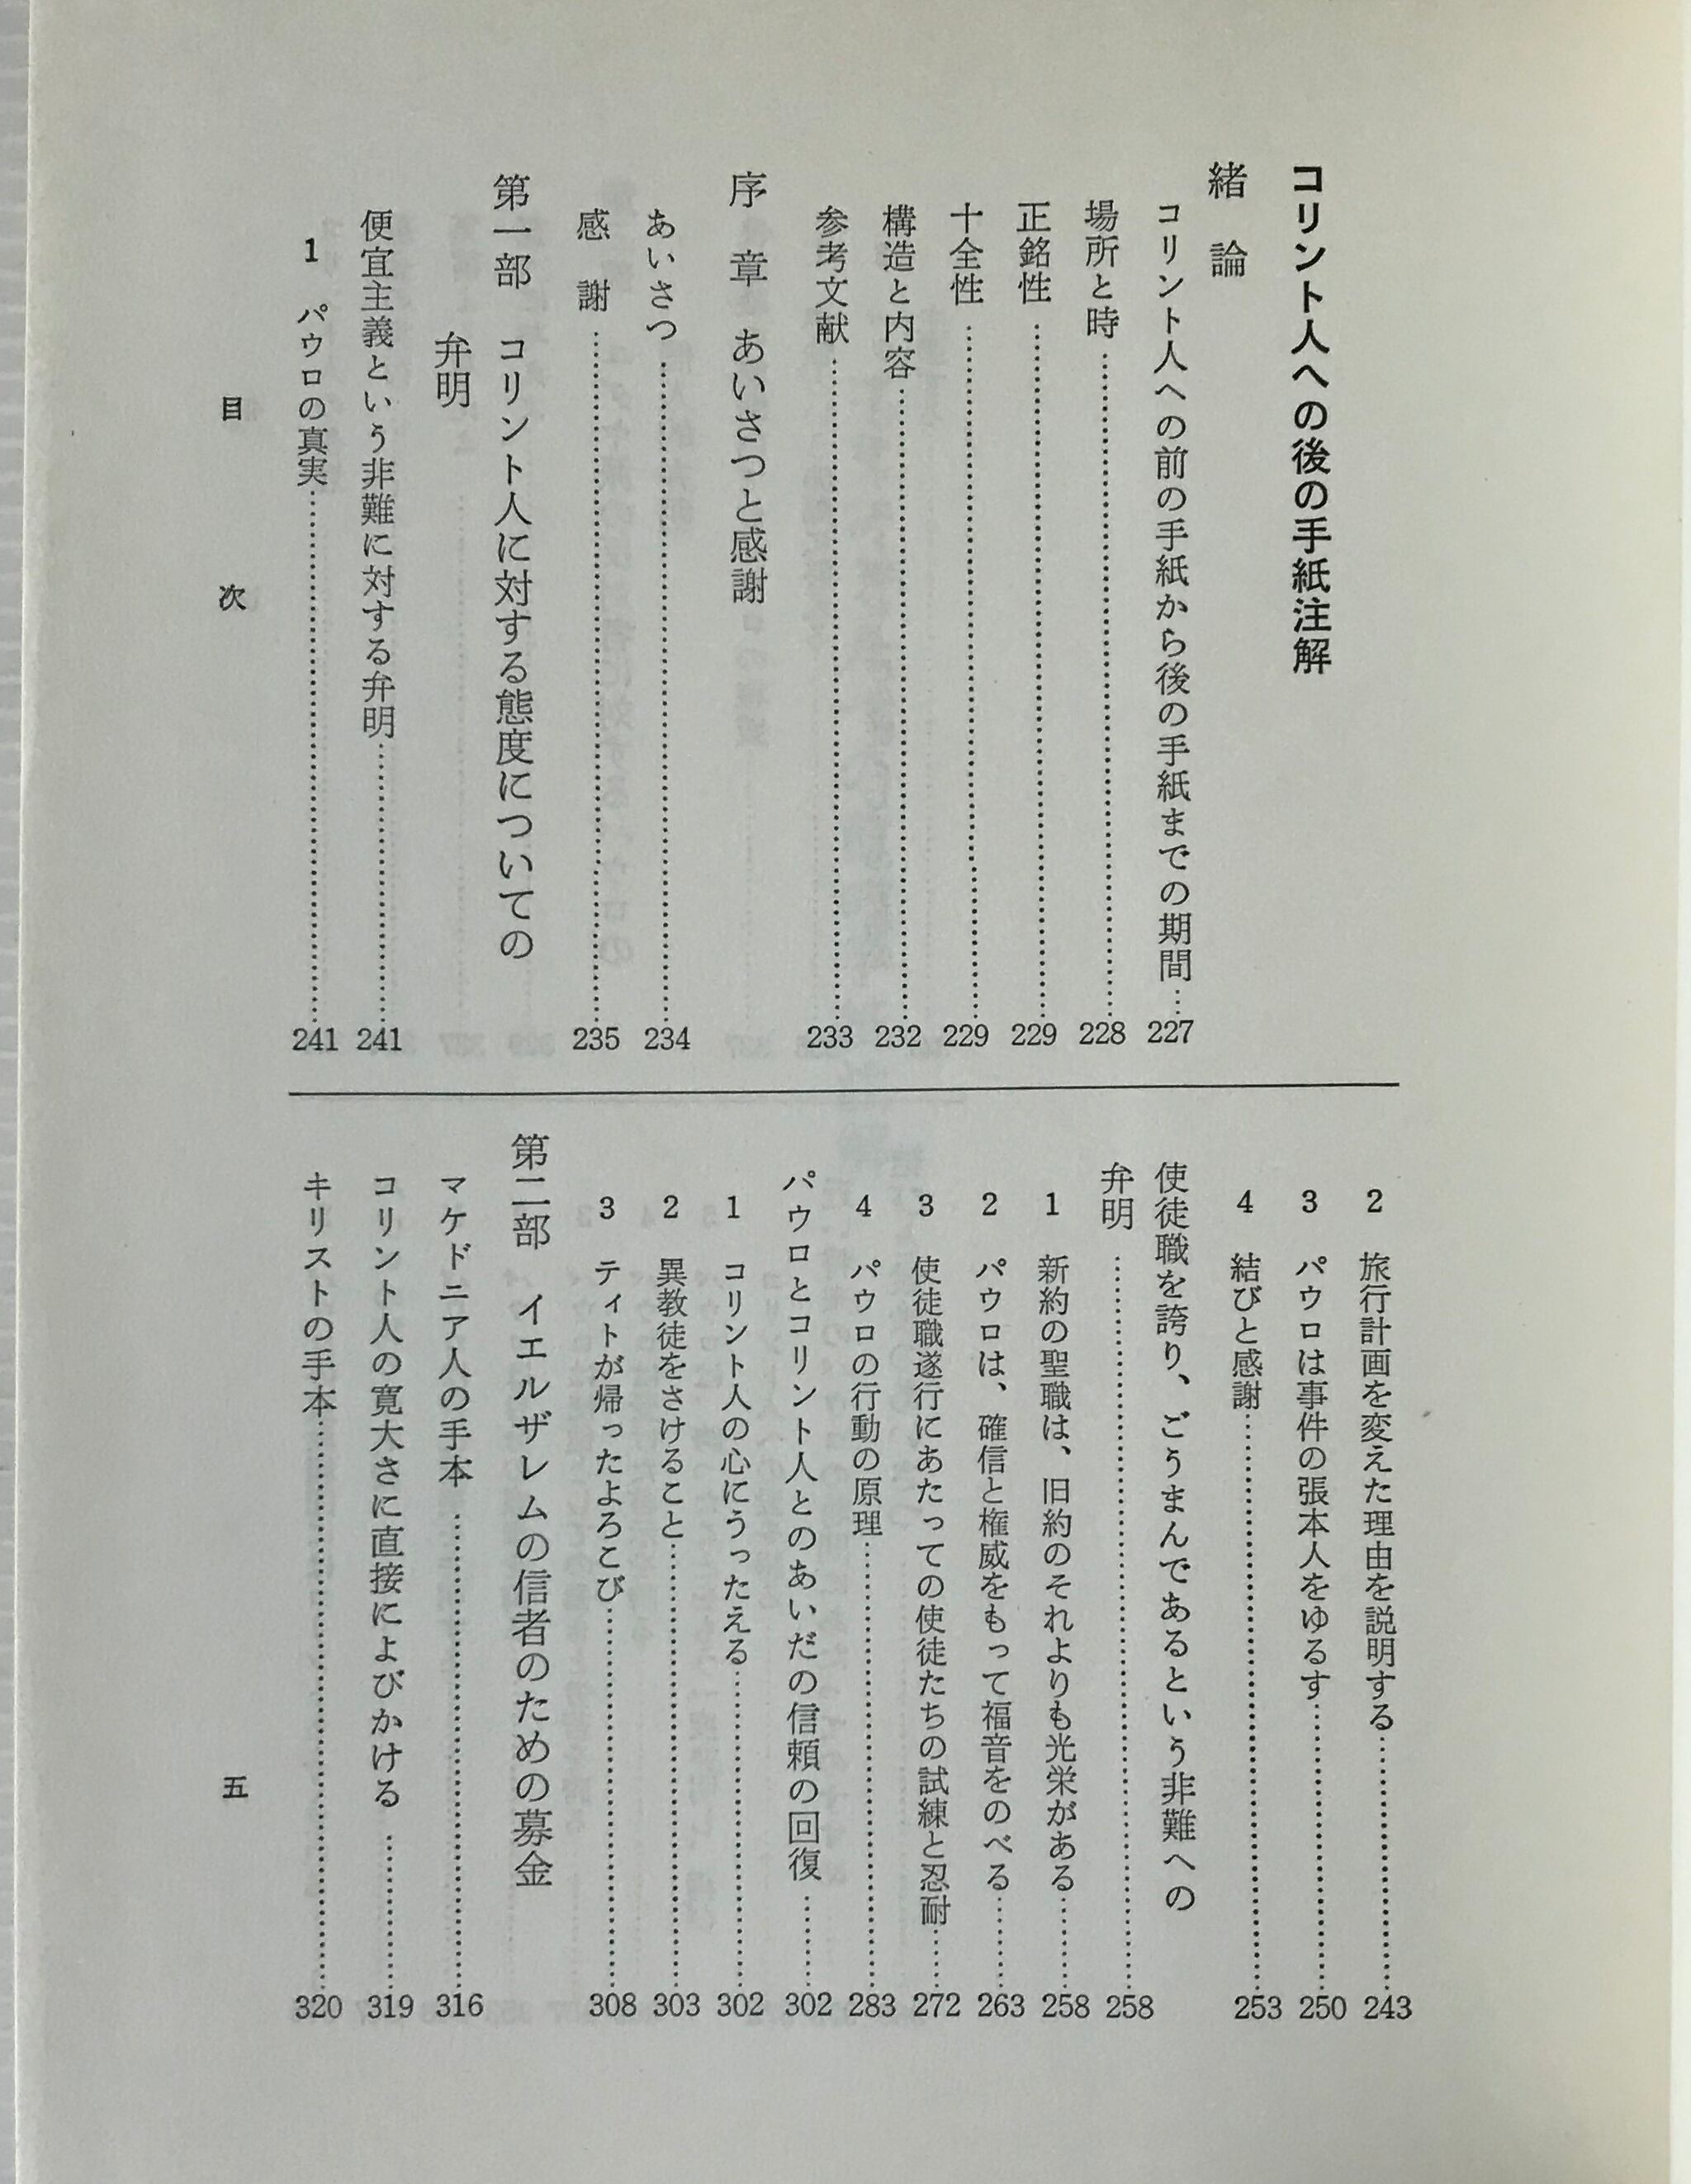 コリント人への後の手紙注解
緒論
コリント人への前の手紙から後の手紙までの期間……227
場所と時……228
正銘性……229
十全性……229
構造と内容……232
参考文献……233
序章 あいさつと感謝
あいさつ……234
感謝……235
第一部 コリント人に対する態度についての
弁明
便宜主義という非難に対する弁明……241
1 パウロの真実……241
2 旅行計画を変えた理由を説明する……243
3 パウロは事件の張本人をゆるす……250
4 結びと感謝……253
使徒職を誇り、ごうまんであるという非難への
弁明……258
1 新約の聖職は、旧約のそれよりも光栄がある……258
2 パウロは、確信と権威をもって福音をのべる……263
3 使徒職遂行にあたっての使徒たちの試練と忍耐……272
4 パウロの行動の原理……283
パウロとコリント人とのあいだの信頼の回復……302
1 コリント人の心にうったえる……302
2 異教徒をさけること……303
3 ティトが帰ったよろこび……308
第二部 イエルザレムの信者のための募金
マケドニア人の手本……316
コリント人の寛大さに直接によびかける……319
キリストの手本……320
目次
五